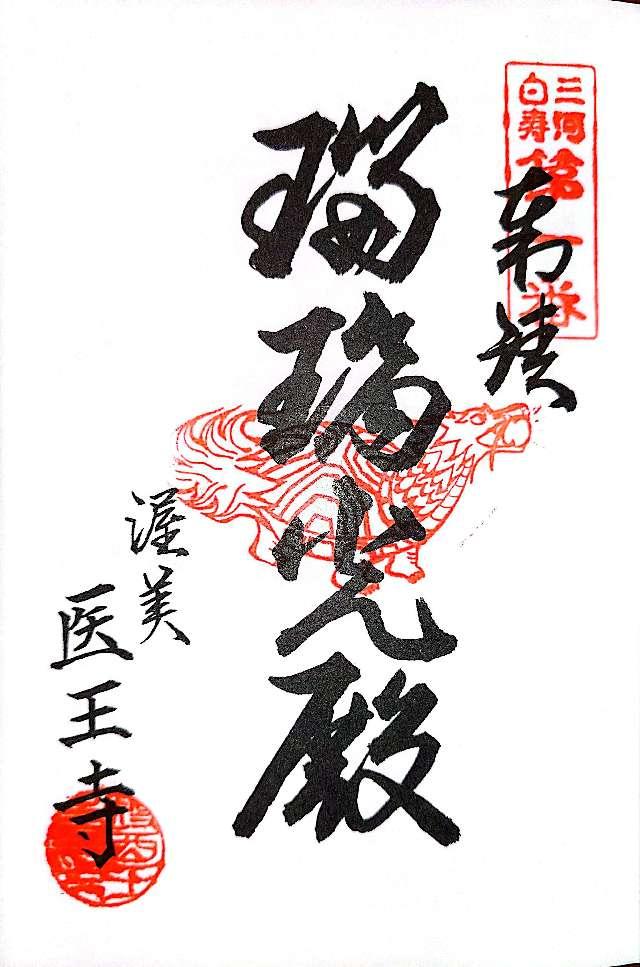 三河
白寿
第一番
奉拝
瑠璃光殿
渥美
医王寺